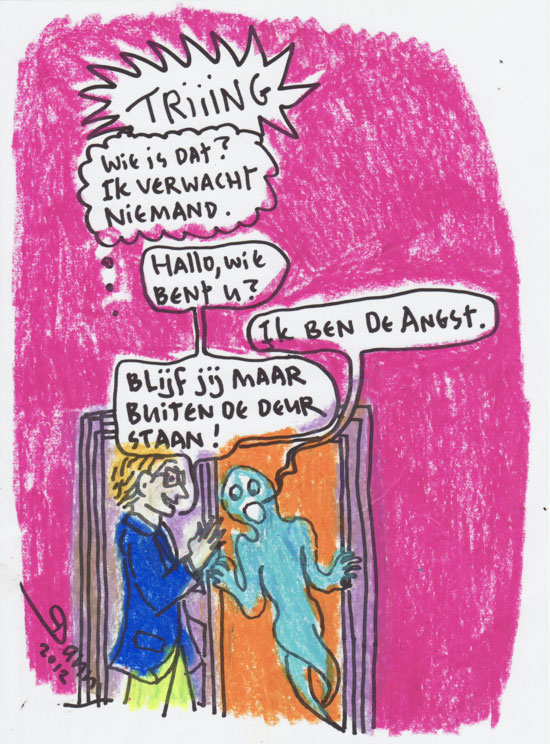 TRiiiNG
Wie is DAT?
IK VERWACHT
NIEMAND.
HALLO, wie
BENT u?
IK BEN De ANGST.
BLijf jij MAAR
BuiTEN DE DEUR
STAAN!
2012